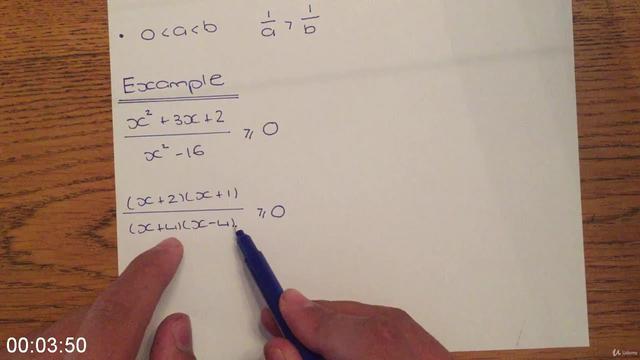 • 0 < a < b    1/a > 1/b
Example
x² + 3x + 2 / x² - 16 ≥ 0
(x+2)(x+1) / (x+4)(x-4) ≥ 0
00:03:50
Udemy